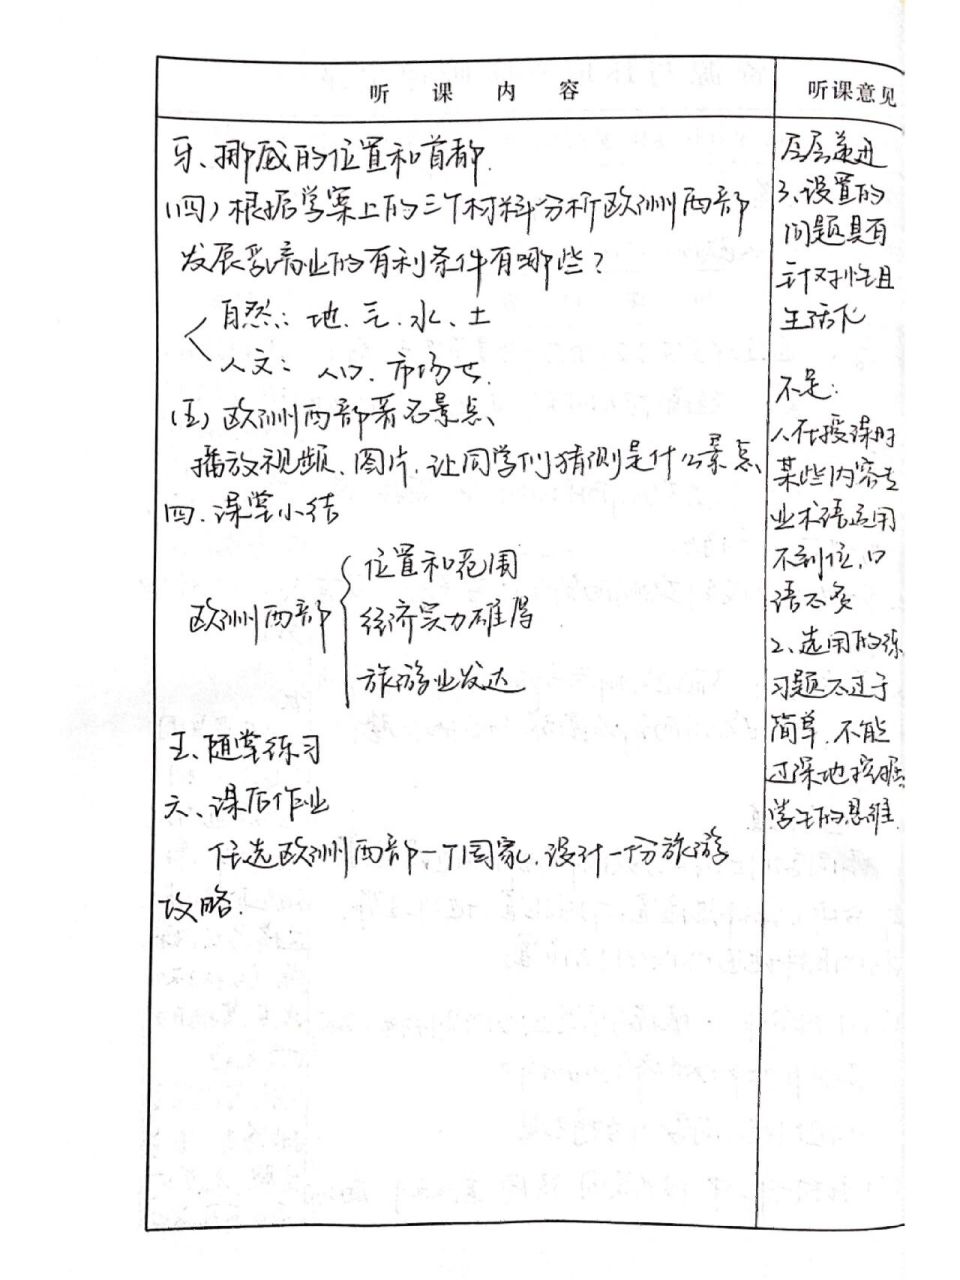 听课内容
牙、挪威的位置和首都.
(四)根据学案上的三个材料分析欧洲西部
发展乳畜业的有利条件有哪些?
自然: 地、气、水、土
人文: 人口、市场大.
(五)欧洲西部著名景点、
播放视频、图片,让同学们猜测是什么景点
四.课堂小结
欧洲西部
位置和范围
经济实力雄厚
旅游业发达
五、随堂练习
六、课后作业
任选欧洲西部一个国家,设计一份旅游
攻略.
听课意见
层层递进
3、设置的
问题具有
针对性且
生活化
不足:
1、在授课时
某些内容专
业术语运用
不到位,口
语太多
2、选用的练
习题太过于
简单,不能
过深地挖掘
学生的思维.